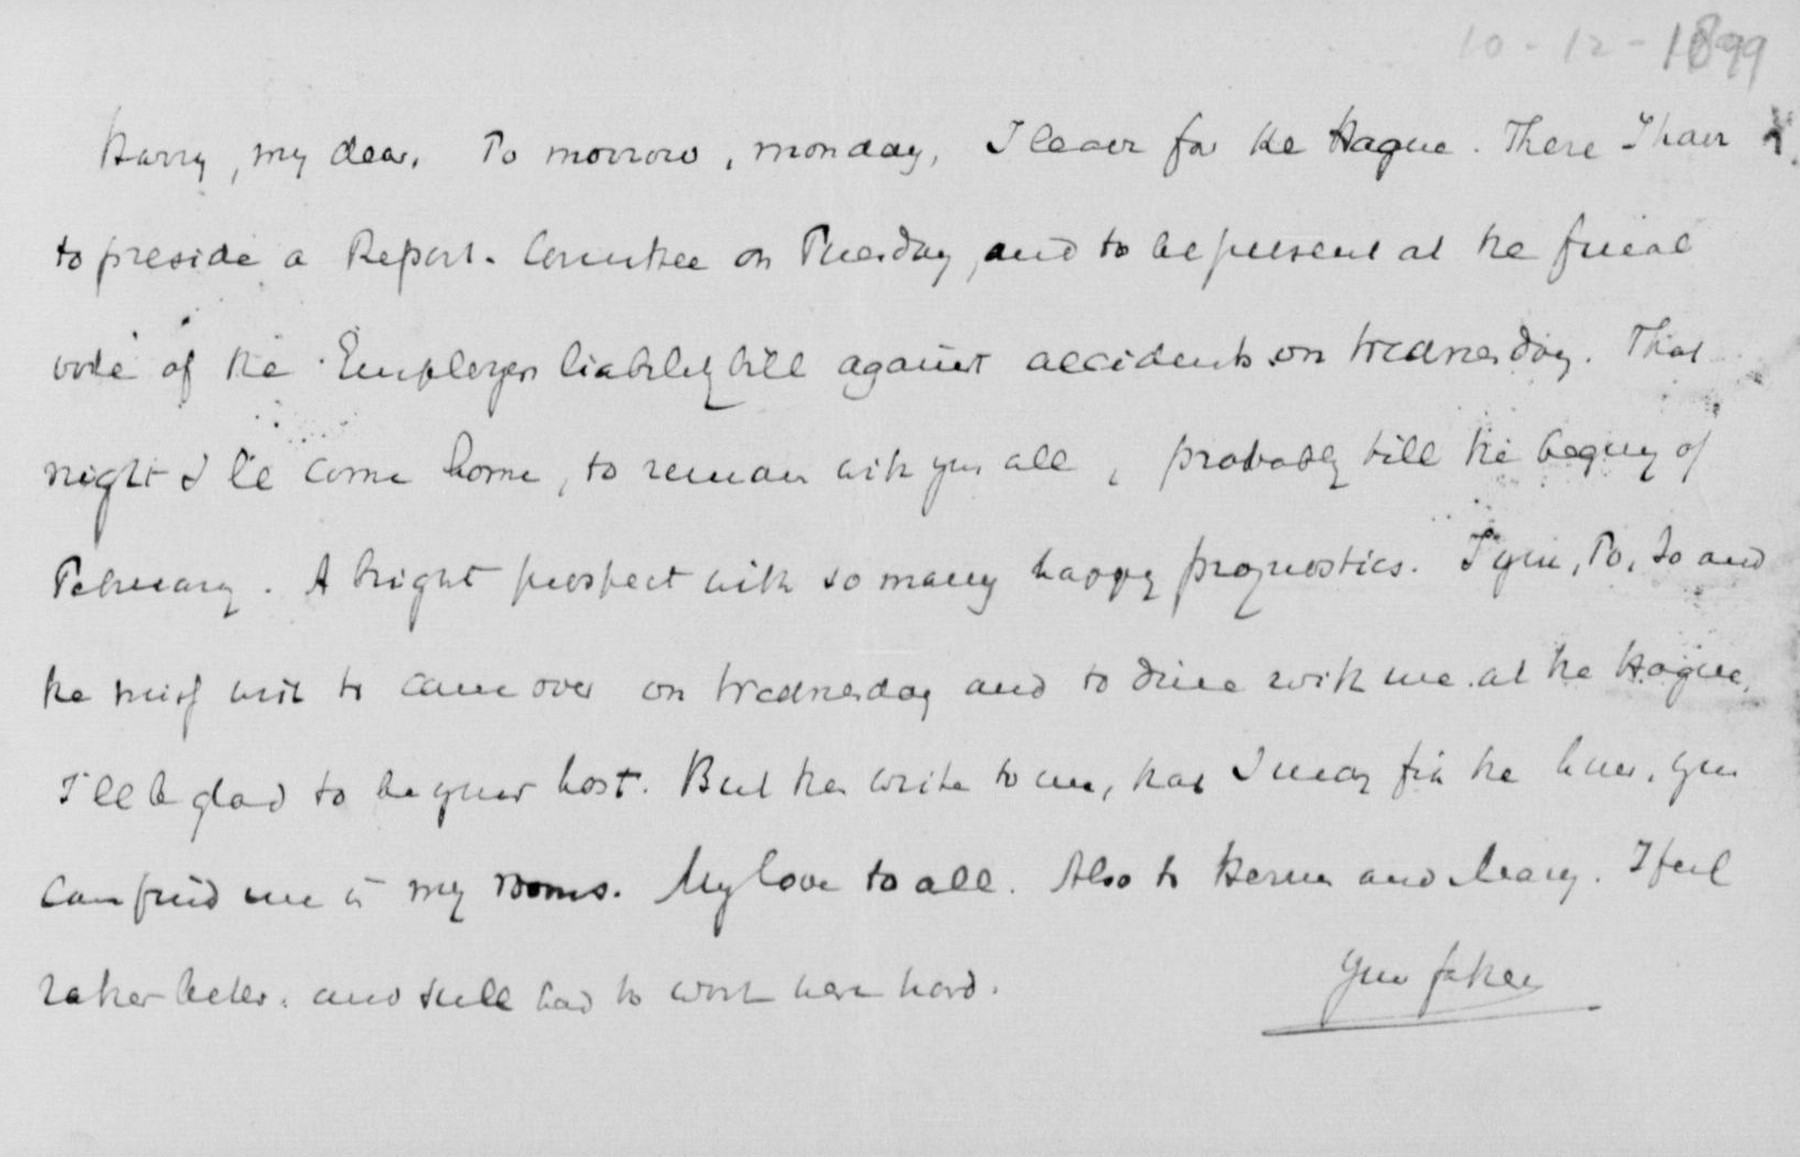 10-12-1899
Harry, my dear. To morrow, monday, I leave for the Hague. There I have
to preside a Report. Committee on Tuesday, and to be present at the final
vote of the Employers liability bill against accidents on Wednesday. That
night I'll come home, to remain with you all, probably till the beging of
February. A bright prospect with so many happy prognostics. If you, To, Jo and
he wish to came over on Wednesday and to dine with me at the Hague,
I'll be glad to be your host. But then write to me, that I may fix the hour. You
can find me in my rooms. My love to all. Also to Herm and Mary. I feel
rather better. and still had to work here hard.
Your father